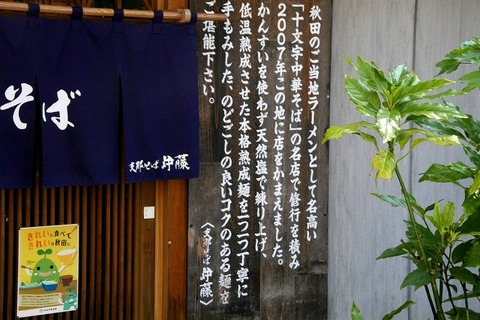 秋田のご当地ラーメンとして名高い
「十文字中華そば」の名店で修行を積み
2007年この地に店をかまえました。
かんすいを使わず天然塩で練り上げ、
低温熟成させた本格熟成麺を一つ一つ丁寧に
手もみした、のどごしの良いコクのある麺を
ご堪能下さい。
〈支那そば 伊藤〉
そば
支那そば 伊藤
きれいに食べて
きれいな秋田に